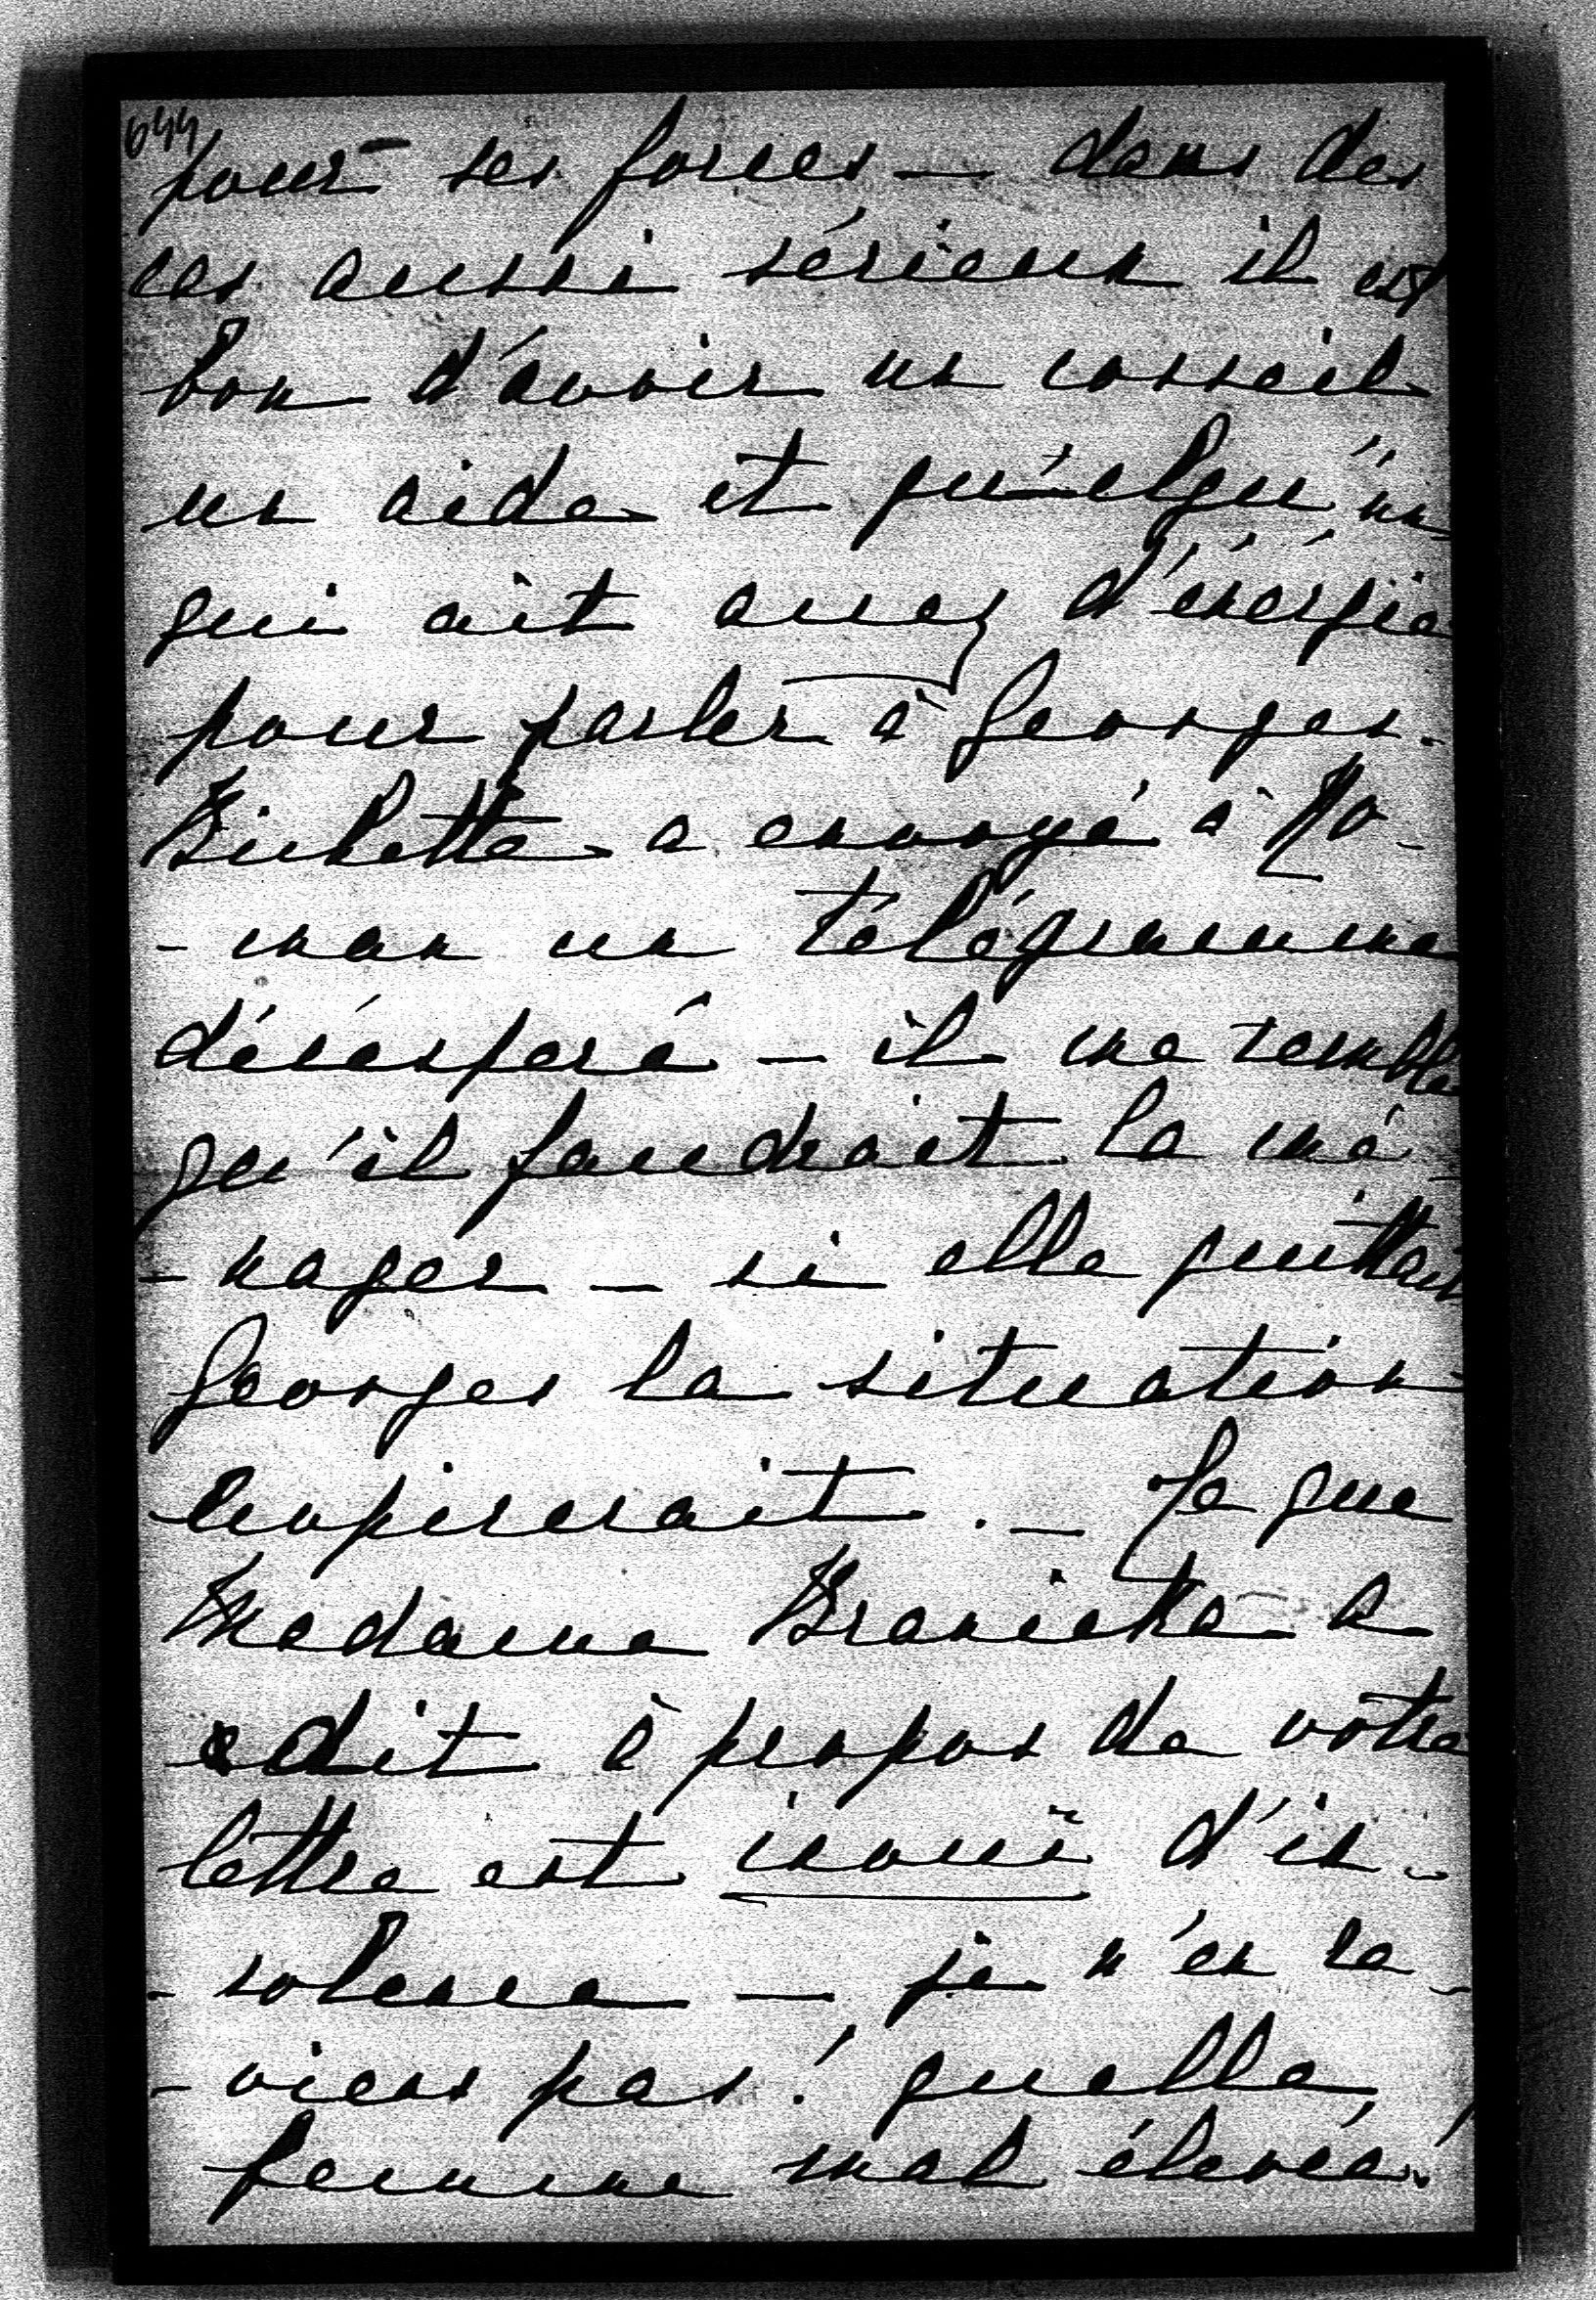 644
pour ses forces — dans des
cas aussi sérieux il est
bon d'avoir un conseil
un aide et quelqu'un
qui ait assez d'énérgie
pour parler à Georges.
Bichette a envoyé à Ro-
- man un télégramme
désésperé — il me semble
qu'il faudrait la mé-
- nager — si elle quittait
Georges la situation
empirerait. — Ce que
Madame Branicka a
dit à propos de votre
lettre est inouï d'in-
- solence — je n'en re-
- viens pas! quelle
femme mal élevée!